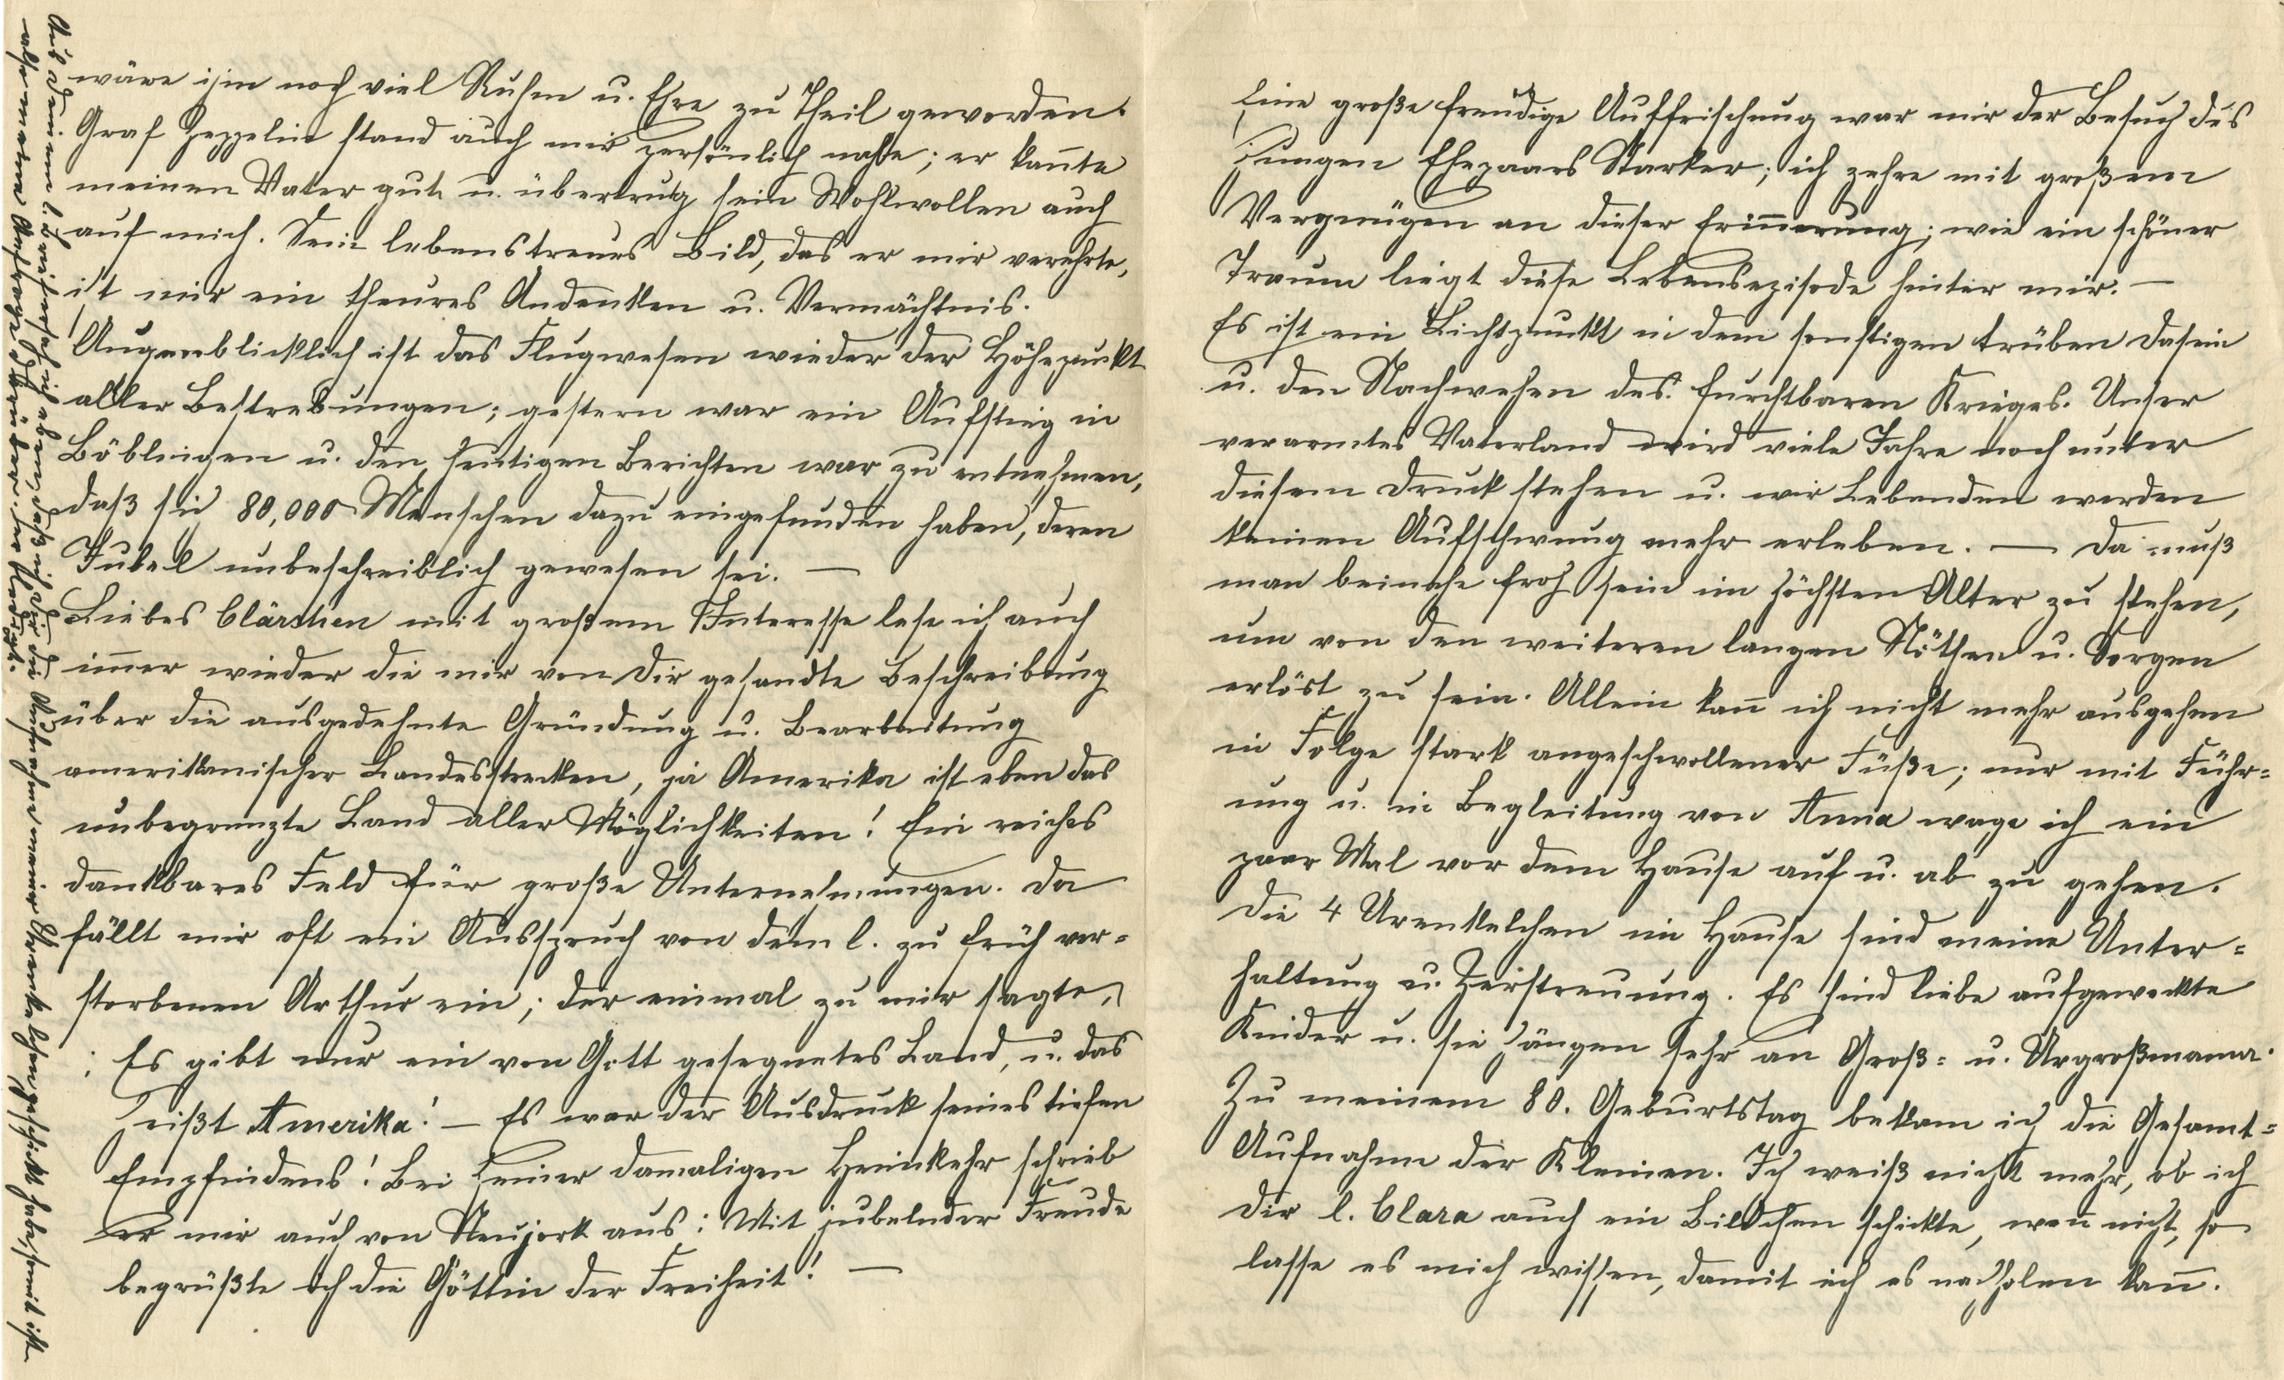 wäre ihm noch viel Ruhm u. Ehre zu Theil geworden.
Graf Zeppelin stand auch mir persönlich nahe; er kannte
meinen Vater gut u. übertrug sein Wohlwollen auch
auf mich. Sein lebenstreues Bild, das er mir verehrte,
ist mir ein theures Andenken u. Vermächtnis.
Augenblicklich ist das Flugwesen wieder der Höhepunkt
aller Bestrebungen; gestern war ein Aufstieg in
Böblingen u. den heutigen Berichten war zu entnehmen,
daß sich 80,000 Menschen dazu eingefunden haben, deren
Jubel unbeschreiblich gewesen sei. —
Liebes Clärchen mit großem Interesse lese ich auch
immer wieder die mir von Dir gesandte Beschreibung
über die ausgedehnte Gründung u. Bearbeitung
amerikanischer Landesstrecken, ja Amerika ist eben das
unbegrenzte Land aller Möglichkeiten! Ein reiches
dankbares Feld für große Unternehmungen. Da
fällt mir oft ein Ausspruch von dem l. zu früh ver=
storbenen Arthur ein; der einmal zu mir sagte,
: Es gibt nur ein von Gott gesegnetes Land, u. das
heißt Amerika! — Es war der Ausdruck seines tiefen
Empfindens! Bei seiner damaligen Heimkehr schrieb
er mir auch von Neujork aus: Mit jubelnder Freude
begrüßte ich die Göttin der Freiheit! —
Aus Deinem l. Brief ersehe ich eben, daß ich Dir die Aufnahme meiner Urenkelchen geschickt habe, somit ist
also meine Anfrage darüber erledigt.
Eine große freudige Auffrischung war mir der Besuch des
jungen Ehepaars Starker; ich zehre mit großem
Vergnügen an dieser Erinnerung; wie ein schöner
Traum liegt diese Lebensepisode hinter mir. —
Es ist ein Lichtpunkt in dem sonstigen trüben Dasein
u. den Nachwehen des furchtbaren Krieges. Unser
verarmtes Vaterland wird viele Jahre noch unter
diesem Druck stehen u. wir Lebenden werden
keinen Aufschwung mehr erleben. — Da muß
man beinahe froh sein im höchsten Alter zu stehen,
um von den weiteren langen Nöthen u. Sorgen
erlöst zu sein. Allein kann ich nicht mehr ausgehen
in Folge stark angeschwollener Füße; nur mit Führ=
ung u. in Begleitung von Anna wage ich ein
paar Mal vor dem Hause auf u. ab zu gehen.
Die 4 Urenkelchen im Hause sind meine Unter=
haltung u. Zerstreuung. Es sind liebe aufgeweckte
Kinder u. sie hängen sehr an Groß= u. Urgroßmama.
Zu meinem 80. Geburtstag bekam ich die Gesamt=
Aufnahme der Kleinen. Ich weiß nicht mehr, ob ich
Dir l. Clara auch ein Bildchen schickte, wenn nicht, so
lasse es mich wissen, damit ich es nachholen kann.